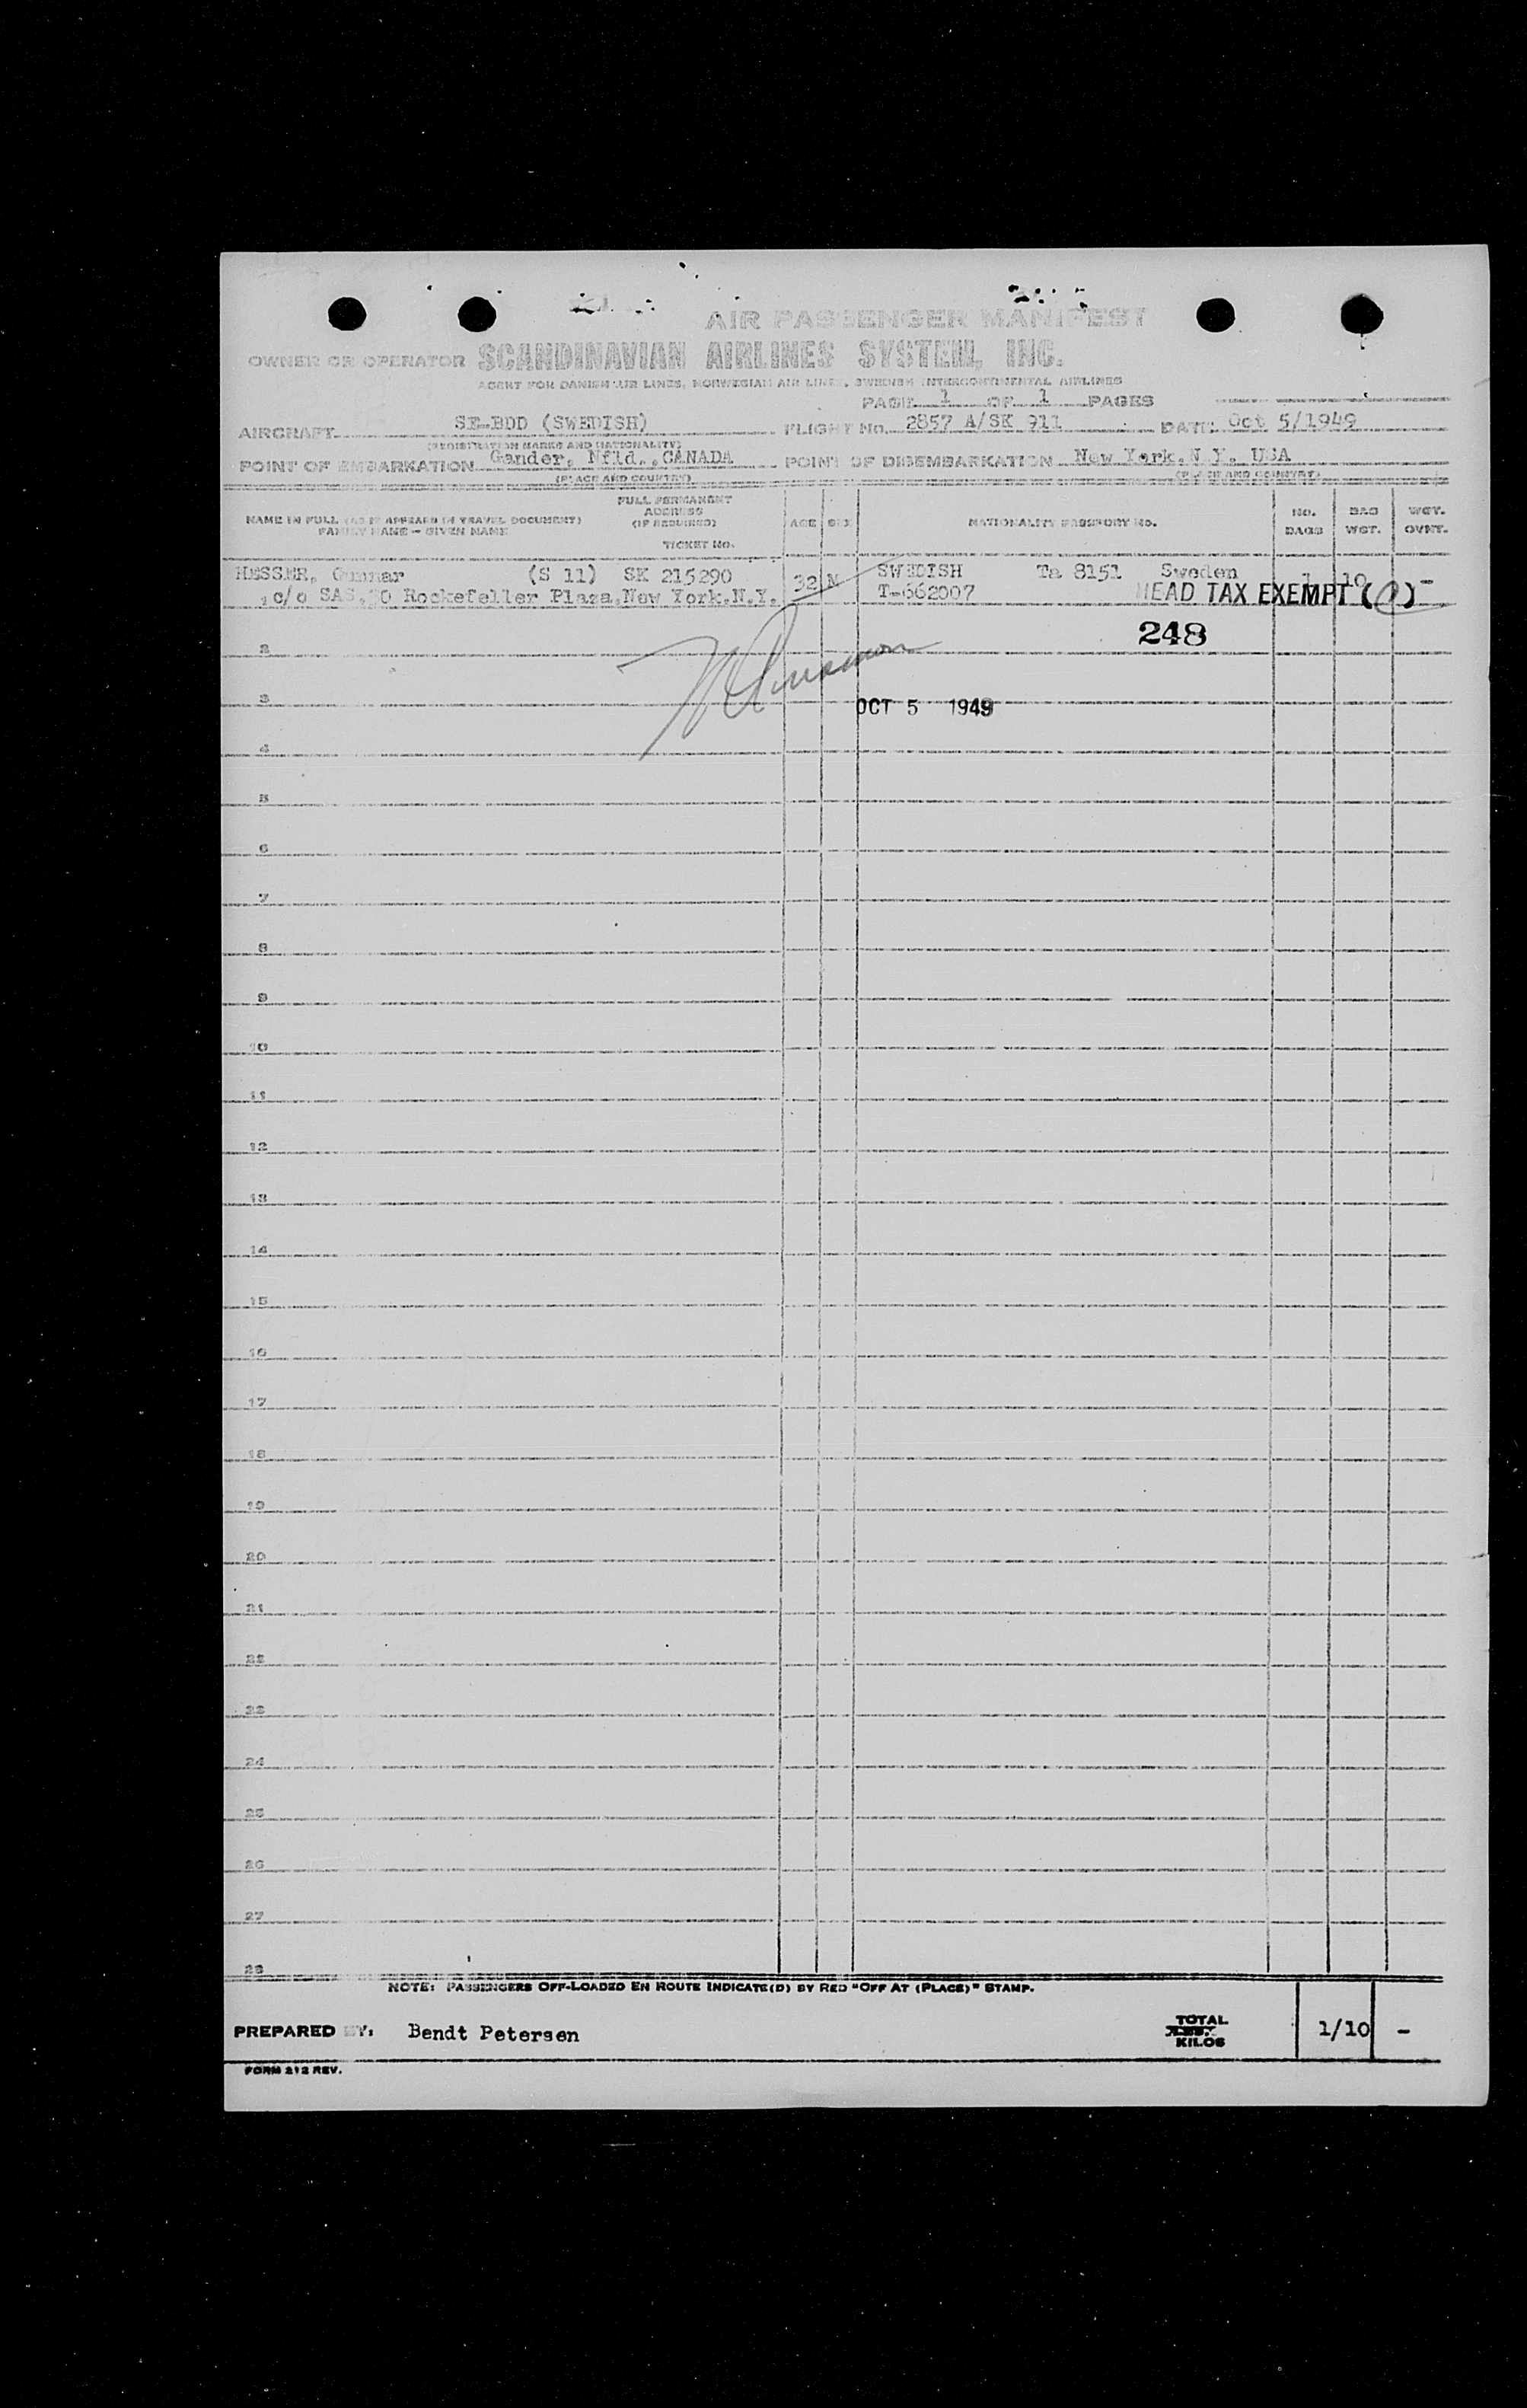 AIR PASSENGER MANIFEST
OWNER OR OPERATOR SCANDINAVIAN AIRLINES SYSTEM, INC.
AGENT FOR DANISH AIR LINES, NORWEGIAN AIR LINES, SWEDISH INTERCONTINENTAL AIRLINES
PAGE 1 OF 1 PAGES
AIRCRAFT SE-BDD (SWEDISH) FLIGHT No. 2857 A/SK 911 DATE Oct 5/1949
(REGISTRATION MARKS AND NATIONALITY)
POINT OF EMBARKATION Gander, Nfld., CANADA POINT OF DISEMBARKATION New York, N.Y. USA
(PLACE AND COUNTRY) (PLACE AND COUNTRY)
NAME IN FULL (AS IT APPEARS IN TRAVEL DOCUMENT)
FAMILY NAME - GIVEN NAME
FULL PERMANENT
ADDRESS
(IF REQUIRED)
TICKET No.
AGE SEX NATIONALITY PASSPORT No. NO. BAGS BAG WGT. WGT. OVWT.
HESSER, Gunnar (S 11) SK 215290 32 SWEDISH Ta 8151 Sweden 1 10 -
1 c/o SAS, 30 Rockefeller Plaza, New York.N.Y. T-662007 HEAD TAX EXEMPT (1)
248
2
3 OCT 5 1949
4
5
6
7
8
9
10
11
12
13
14
15
16
17
18
19
20
21
22
23
24
25
26
27
28
NOTE: PASSENGERS OFF-LOADED EN ROUTE INDICATE(D) BY RED "OFF AT (PLACE)" STAMP.
PREPARED BY: Bendt Petersen TOTAL KILOS 1/10 -
FORM 212 REV.